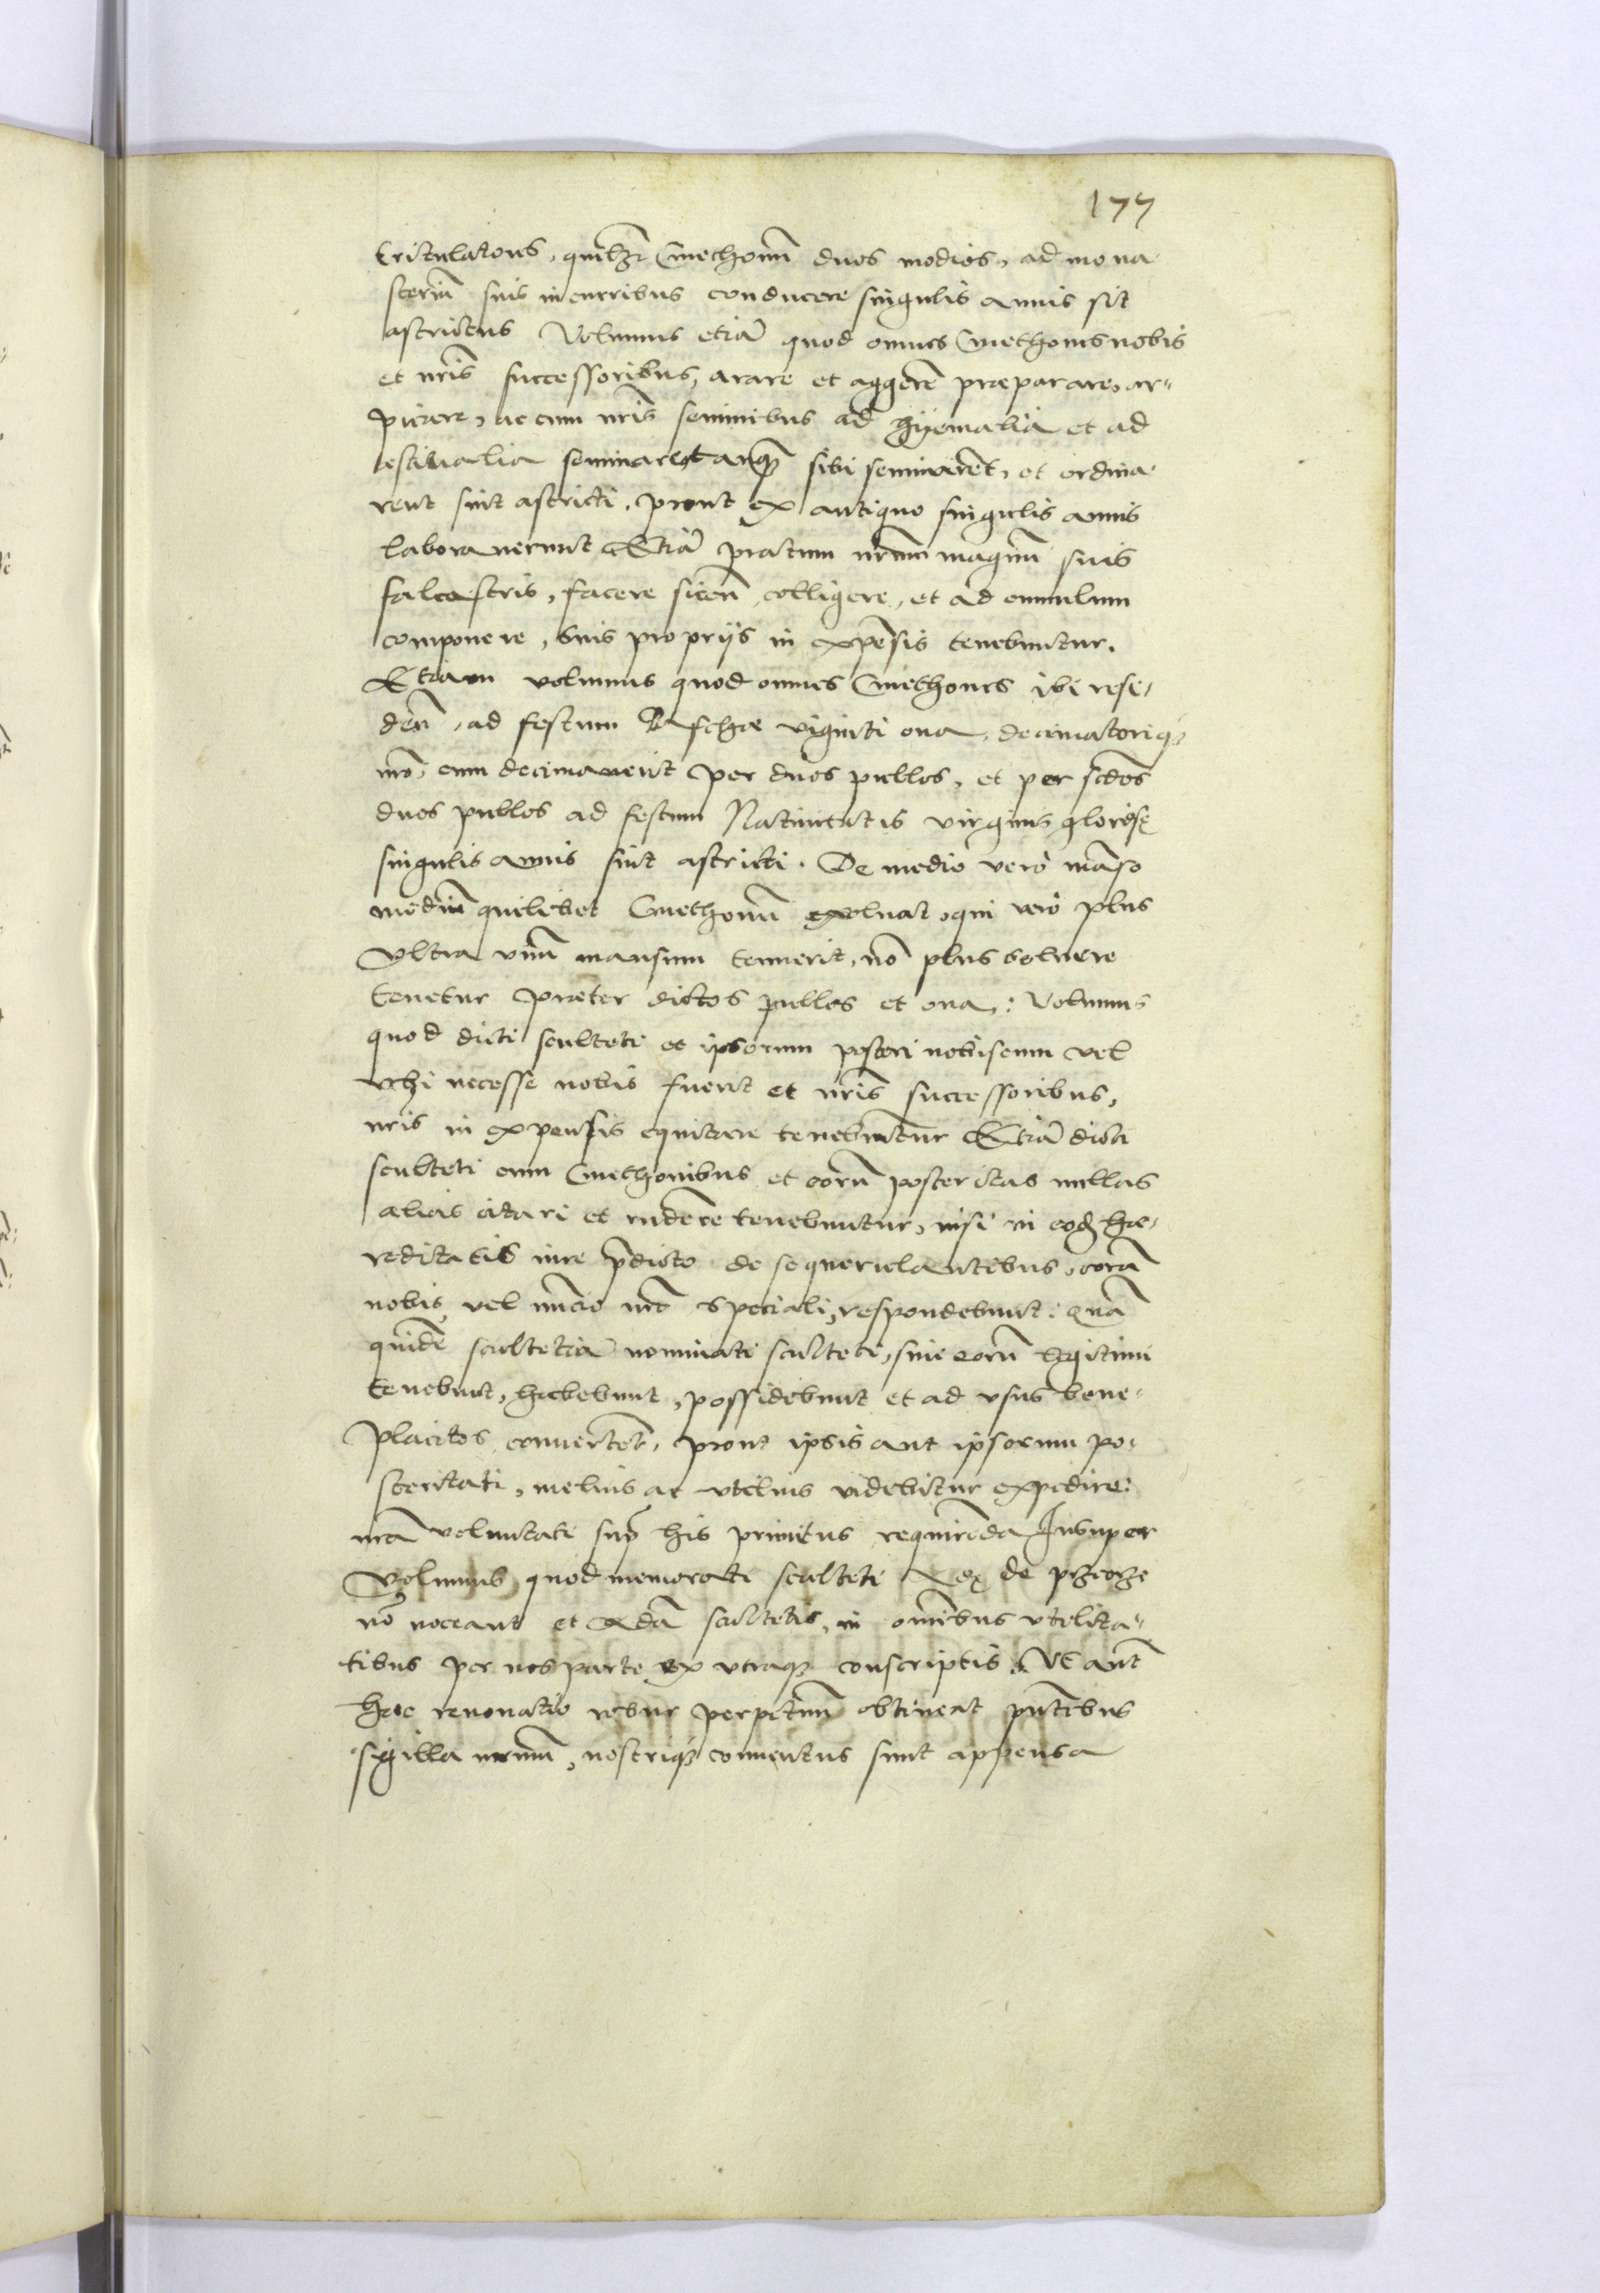 177
trituratous, quilzt Cmethonũ duos modios, ad mona
steriũ suis in curribus conducere singulis annis sit
astrictus Volumus etiã quod omnes Cmethones nobis
et nr̃is successoribus, arare et aggerẽ præparare, ar-
picare, ac cum nr̃is seminibus ad hyemalia et ad
estiualia seminare tanqȝ sibi seminarẽt, et ordina
rent sint astricti, prout ex antiquo singulis annis
laborauerunt Etiã pratum nr̃um magnũ suis
falcastris, facere sicuñ colligere, et ad cumulum
componere, suis proprijs in expẽsis tenebuntur.
Etiam volumus quod omnes Cmethones ibi resi-
deñ, ad festum Paschæ viginti oua, decimatoriqȝ
nr̃o, cum decimauerit per duos pullos, et per scdos
duos pullos ad festum Natiuitatis virginis gloriosę
singulis annis sint astricti. De medio verò mãso
mediũ quilibet Cmethonũ exoluat, qui verò plus
vltra vnũ mansum tenuerit, nõ plus soluere
tenetur præter dictos pullos et oua: Volumus
quod dicti sculteti et ipsorum posteri nobiscum vel
vbi necesse nobis fuerit et nr̃is successoribus,
nr̃is in expensis equitare tenebũtur Etiã dicti
sculteti cum Cmethonibus et eorũ posteritas nullas
alias citari et rñdere tenebuntur, nisi in eođ hæ-
reditatis iure p̃dicto de se querulantibus, corã
nobis, vel nũcio nr̃o speciali, respondebunt: Quã
quidẽ scultetiã nominati sculteti, siue eorũ legitimi
tenebunt, habebunt, possidebunt et ad vsus bene-
placitos conuertẽt, prout ipsis aut ipsorum po-
steritati, melius ac vtilius videbitur expedire:
nr̃a voluntate sup̃ his primitus requirẽda Insuper
Volumus, quod memorati sculteti de
nõ noceant et scultetis, in omĩbus vtilita-
tibus per nos parte ex vtraqȝ conscriptis. Vt aũt
hæc renouatio robur perpetuũ obtineat pñtibus
sigilla nr̃um, nostriqȝ conuentus sunt appensa